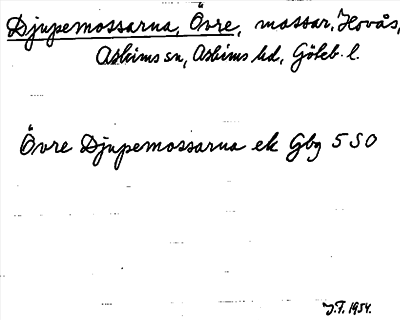 Djupemossarna, Övre, mossar, Hovås,
Askims sn, Askims hd, Göteb. l.
Övre Djupemossarna ek Gbg 5 SO
J.F. 1954.